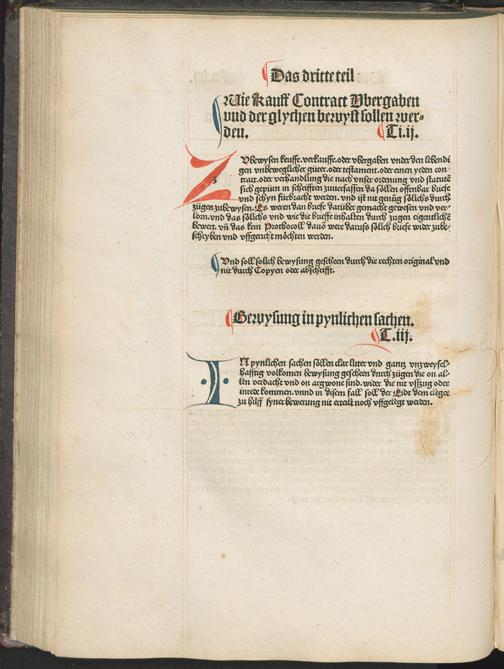 Das dritte teil
Wie Kauff Contract Vbergaben
vnd der glychen bewyst sollen wer-
den. Ti.ij.
ZVbewysen keuffe. verkauffe. oder vbergaben vnder den lebendi
gen vnbeweglicher güter. oder testament. oder einen yeden con
tract. oder verhandlung die nach vnser ordenung vnd statutē
sich gepürn in schrifften zuuerfassen da söllen offenbar briefe
vnd schyn fürbracht werden. vnd ist nit genüg sölichs durch
zügen zubewysen. Es weren dan briefe darüber gemacht gewesen vnd ver-
lorn. vnd das sölichs vnd wie die brieffe inhalten durch zugen eigentlichē
bewert. vñ das kein Prothocoll dauō were daruss sölich briefe wider zube-
schryben vnd vffgericht möchten werden.
Vnd soll solich bewysung gescheen durch die rechten original vnd
nit durch Copyen oder abschrifft.
Bewysung in pynlichen sachen.
T.iij.
IN pynlichen sachen söllen clar luter vnd gantz vnzweyfel-
hafftig volkomen bewysung gescheen durch zügen die on al-
len verdacht vnd on argwone sind. wider die nit vsszug oder
inrede kommen. vnnd in disem fall soll der Eidt dem cleger
zu hilff syner bewerung nit erteilt noch vffgelegt werden.